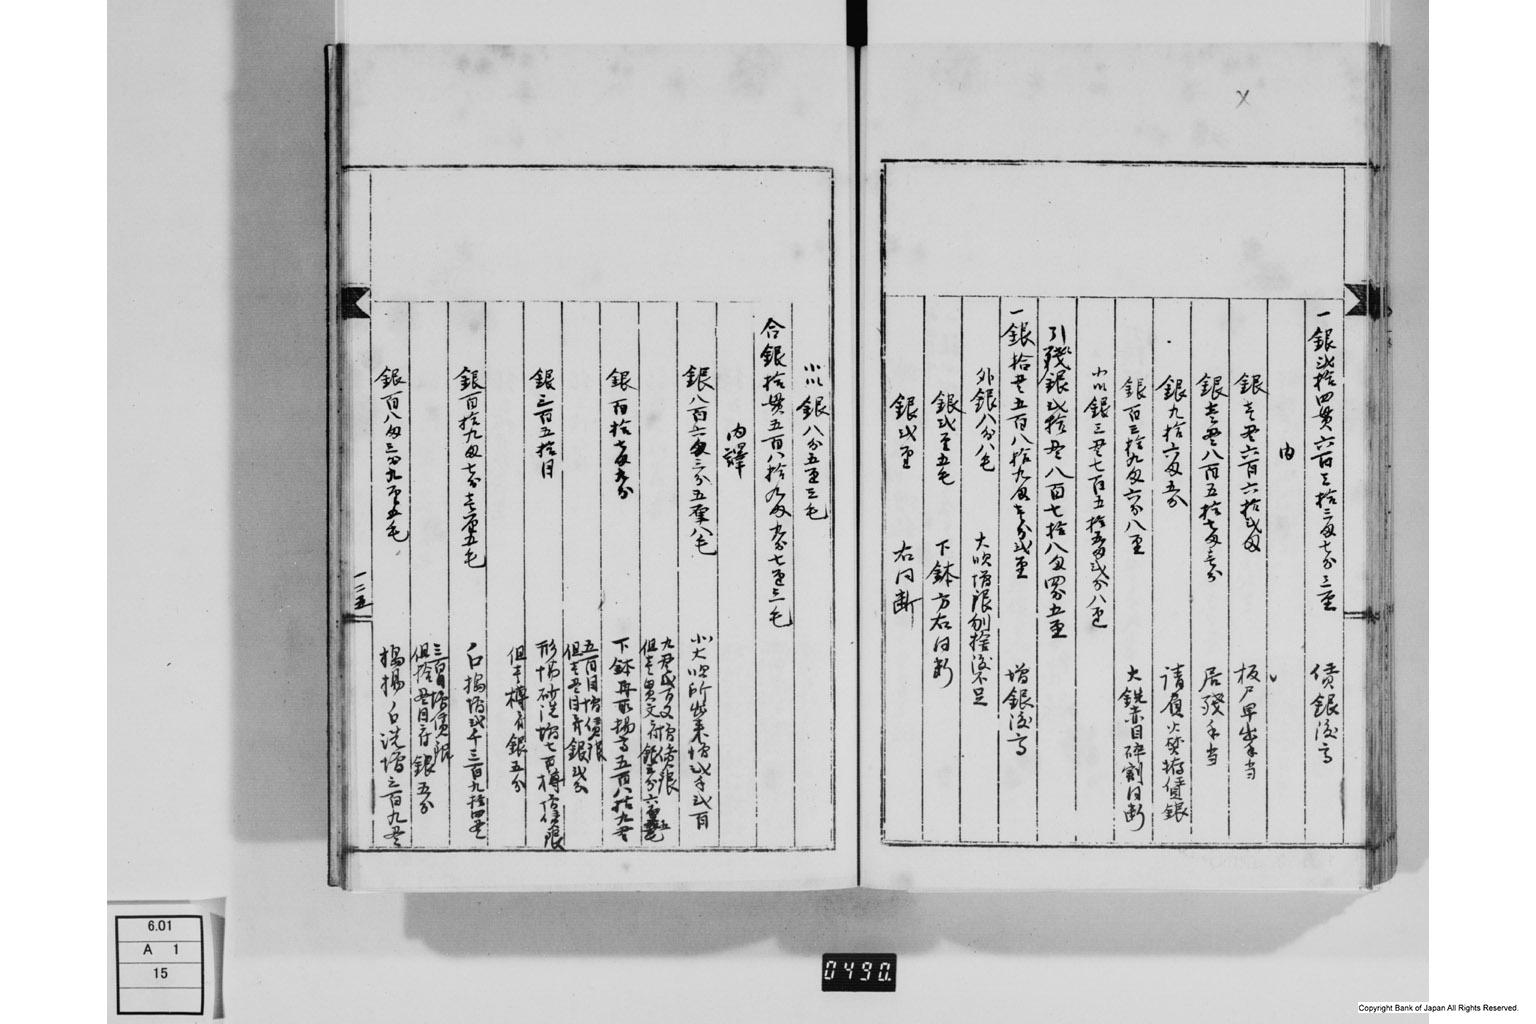 一銀弐拾四貫六百三拾三匁七分三厘 償銀渡高
内
銀壱貫六百六拾弐匁
銀壱貫八百五拾七匁三分 居残手当
銀九拾六匁五分 請負 償銀
銀百三拾九匁六分八厘 大銑赤目砕割同断
小以銀三貫七百五拾五匁弐分八厘
引残銀弐拾貫八百七拾八匁四分五厘
一銀拾貫五百八拾九匁壱分弐厘 増銀渡高
外銀八分八毛 大吹増銀割捨渡不足
銀弐厘五毛 下鉢方右同断
銀弐厘 右同断
小以銀八分五厘三毛
合銀拾貫五百八拾九匁九分七厘三毛
内譯
銀八百六匁三分五厘八毛 小大吹所出来増弐千弐百
九貫弐百文増償銀
但壱貫文ニ付銀
銀百拾七匁九分 下鉢 五百八拾九貫
五百目増償銀
但壱貫目ニ付銀弐分
銀三百五拾目 砂洗増七百樽増償銀
但壱樽ニ付銀五分
銀百拾九匁七分壱厘五毛 石 増弐千三百九拾四貫
三百目増償銀
但拾貫目ニ付銀五分
銀百八匁三分九厘五毛 石洗増三百九貫
一二五
6.01
A 1
15
0490.
Copyright Bank of Japan All Rights Reserved.